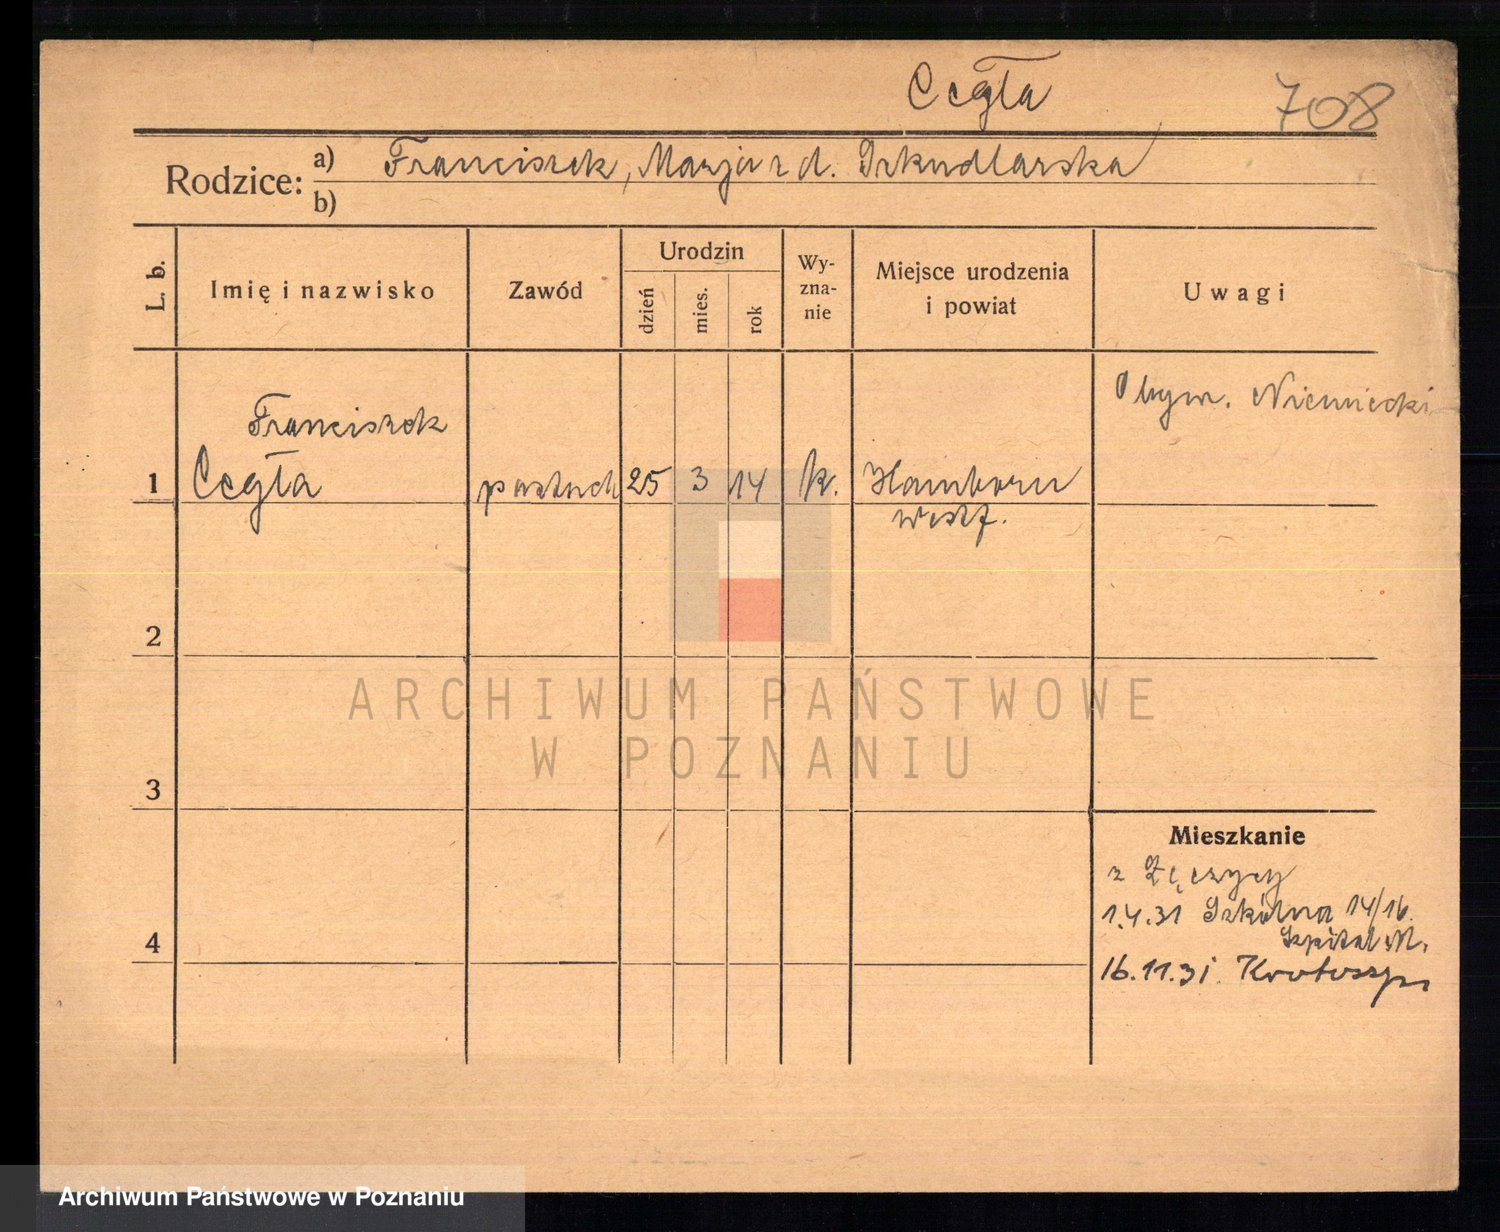 Cegła
708
Rodzice: a) Franciszek, Marja z d. Szkudlarska
b)
L. b. Imię i nazwisko Zawód Urodzin dzień mies. rok Wy-zna-nie Miejsce urodzenia i powiat Uwagi
Obyw. Niemiecki
Franciszek
1 Cegła pastuch 25 3 14 k. Hamborn
Westf.
2
3
4
Mieszkanie
z Łęczycy
1.4.31 Szkolna 14/16.
Szpital M.
16.11.31. Krotoszyn
ARCHIWUM PAŃSTWOWE
W POZNANIU
Archiwum Państwowe w Poznaniu